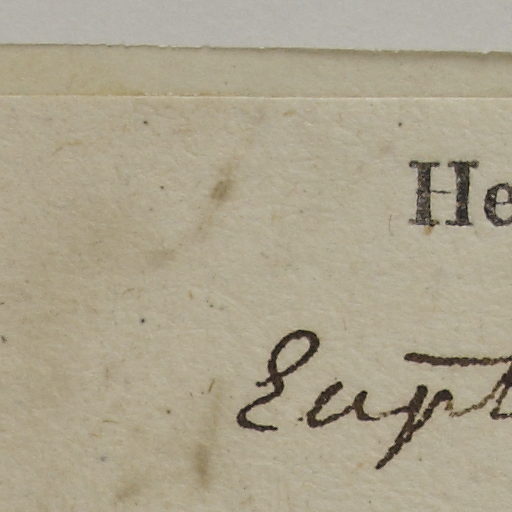 He
Eupt